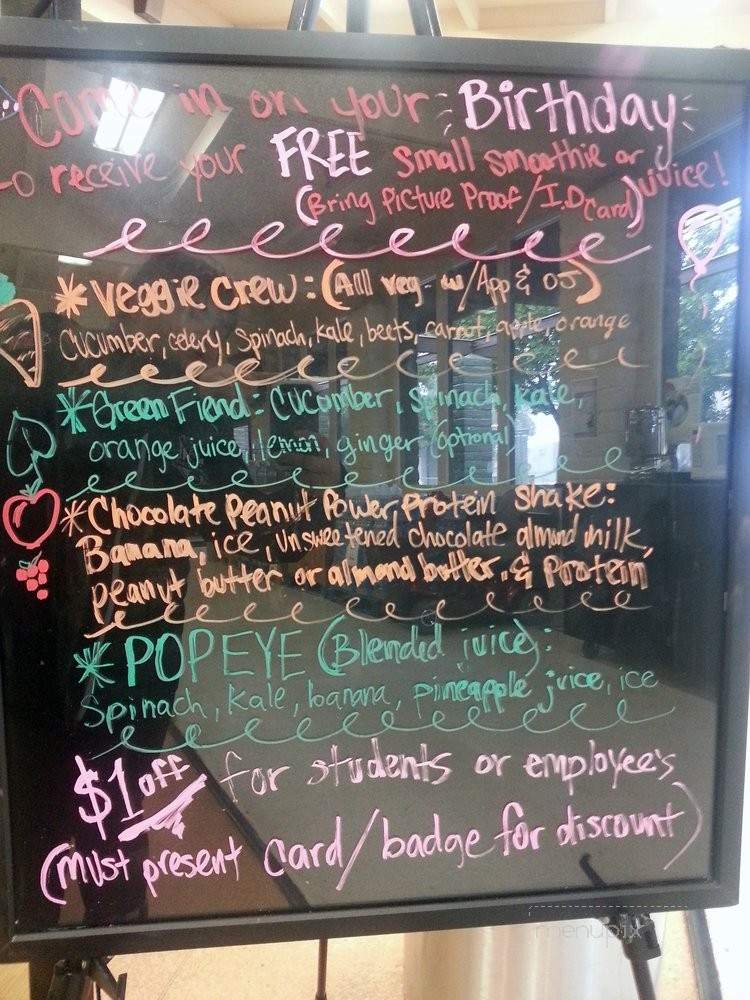 Come in on your Birthday
to receive your FREE small smoothie or juice!
(Bring Picture Proof/I.D Card)
*Veggie Crew: (All veg w/App & OJ)
Cucumber, celery, Spinach, kale, beets, carrot, apple, orange
*Green Fiend: Cucumber, spinach, kale,
orange juice, lemon, ginger (optional)
*Chocolate Peanut Power Protein shake:
Banana, ice, unsweetened chocolate almond milk,
peanut butter or almond butter. & Protein
*POPEYE (Blended juice):
Spinach, kale, banana, pineapple juice, ice
$1 off for students or employee's
(must present card/badge for discount)
menupix